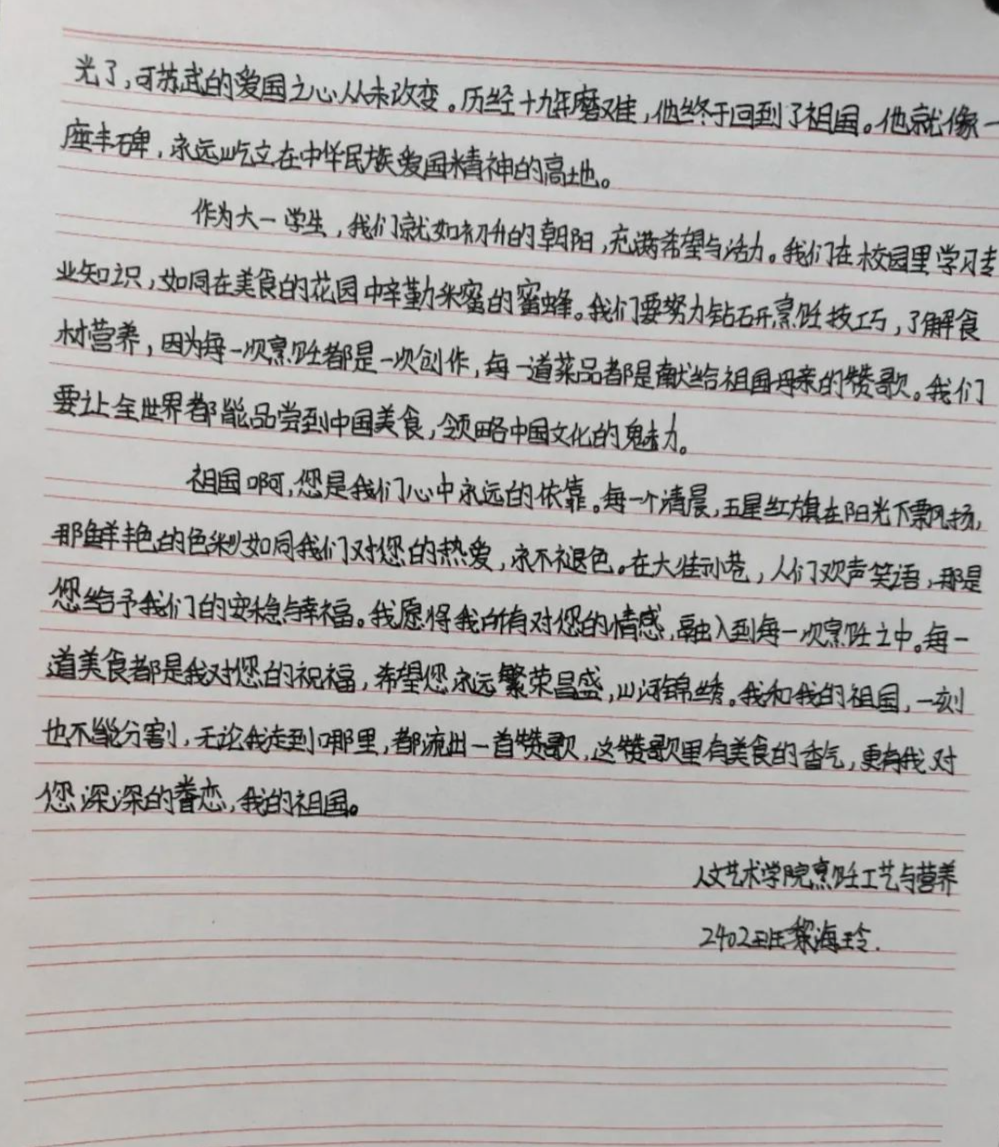 光了，可苏武的爱国之心从未改变。历经十九年磨难，他终于回到了祖国。他就像一
座丰碑，永远屹立在中华民族爱国精神的高地。
作为大一学生，我们就如初升的朝阳，充满希望与活力。我们在校园里学习专
业知识，如同在美食的花园中辛勤采蜜的蜜蜂。我们要努力钻研烹饪技巧，了解食
材营养，因为每一次烹饪都是一次创作，每一道菜品都是献给祖国母亲的赞歌。我们
要让全世界都能品尝到中国美食，领略中国文化的魅力。
祖国啊，您是我们心中永远的依靠。每一个清晨，五星红旗在阳光下飘扬，
那鲜艳的色彩如同我们对您的热爱，永不褪色。在大街小巷，人们欢声笑语，那是
您给予我们的安稳与幸福。我愿将我所有对您的情感，融入到每一次烹饪之中。每一
道美食都是我对您的祝福，希望您永远繁荣昌盛，山河锦绣。我和我的祖国，一刻
也不能分割，无论我走到哪里，都流出一首赞歌，这赞歌里有美食的香气，更有我对
您深深的眷恋，我的祖国。
人文艺术学院烹饪工艺与营养
2402班黎海玲.